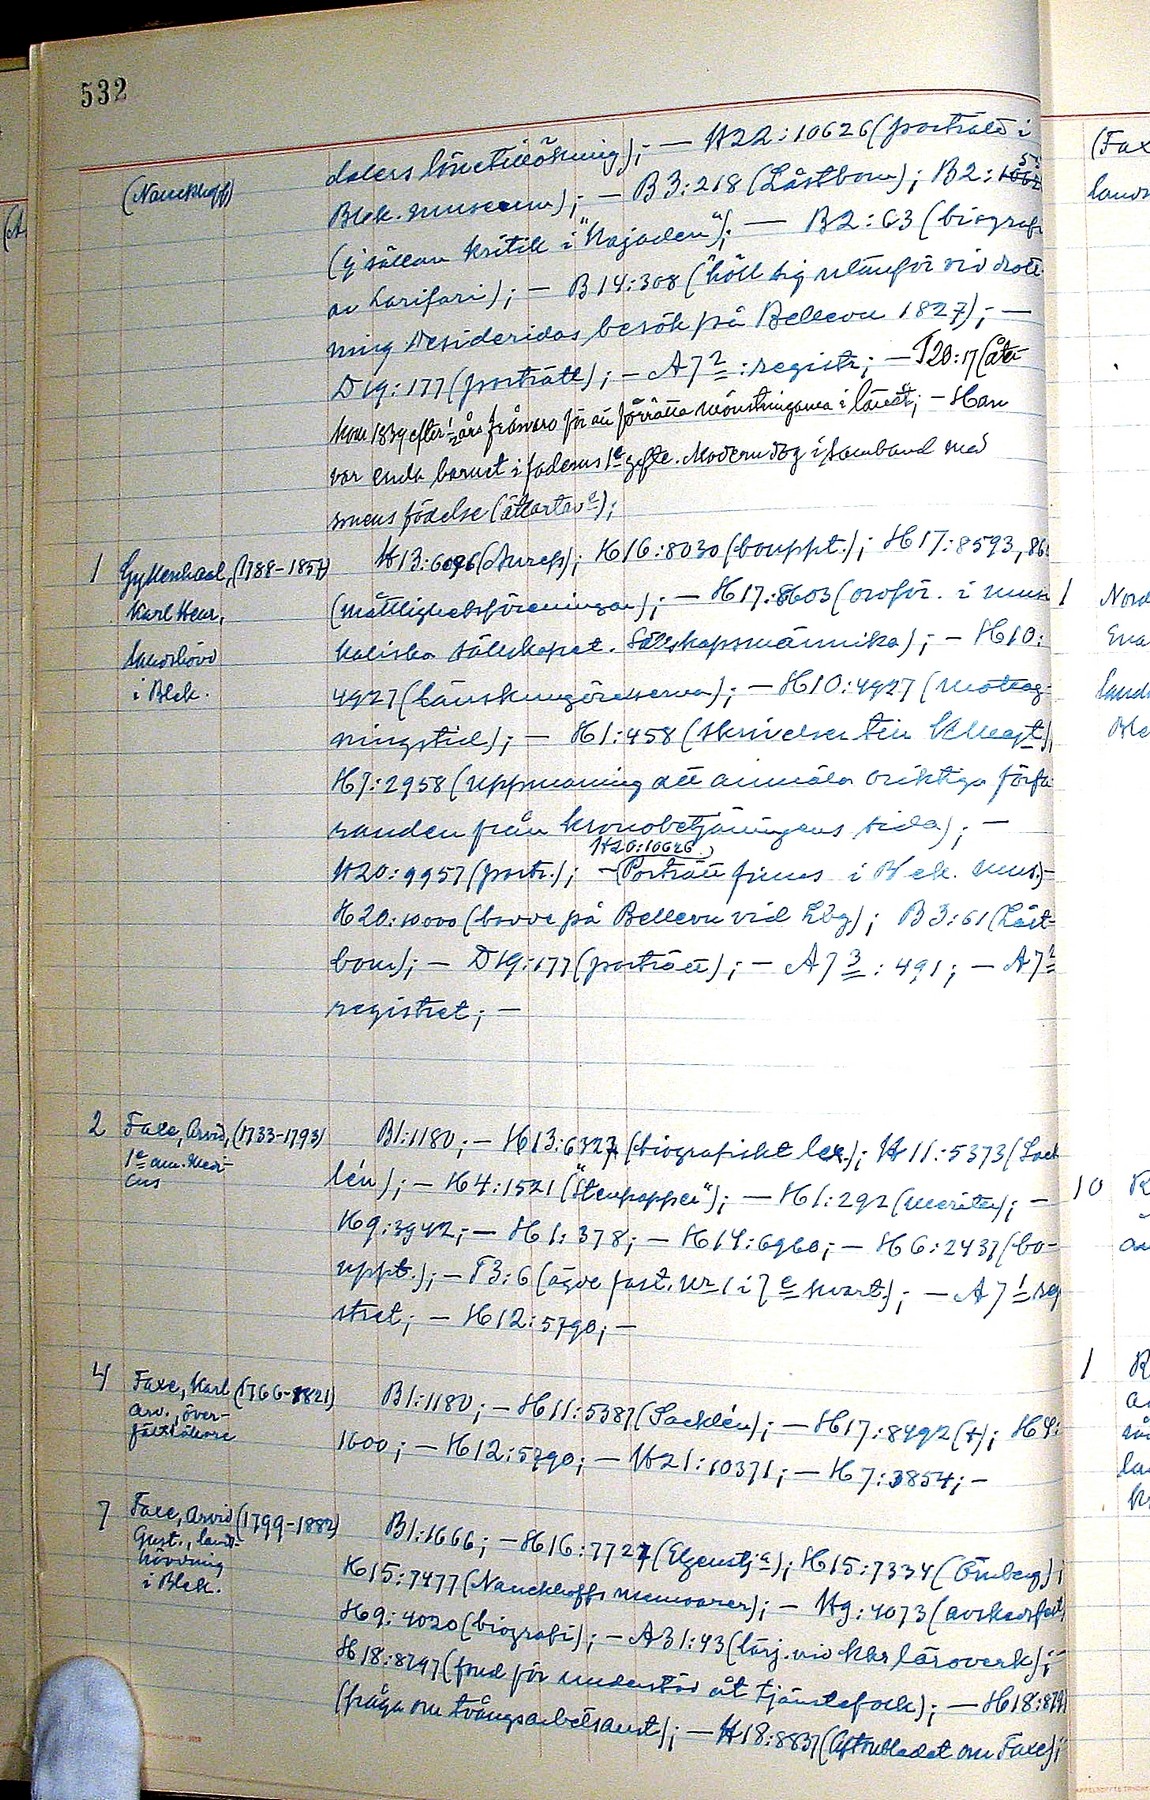 532
(Nauckhoff)
dalers lönetillökning); — H22:10626 (porträtt i
Blek. museum); — B3:218 (Låstbom); B2:
(ej sällan kritik i "Najaden"); — B2:63 (biografi
av Larifari); — B14:308 (höll sig utanför vid drott-
ning Desiderias besök på Bellevue 1827); —
D19:177 (porträtt); — A7 2 : registr; — T20:17 (åter
kom 1839 efter 1/2 års frånvaro för att förrätta mönstringarna i länet; — Han
var enda barnet i faderns 1e gifte. Modern dog i samband med
sonens födelse
1 Gyllenhaal, (1788-1857)
Karl Henr,
landshövd
i Blek.
H13:6096 ; H16:8030 (bouppt.); H17:8593, 86
(måttlighetsföreningar); — H17:8603 (ordför. i musi
kaliska sällskapet. Sällskapsmänniska); — H10:
4927 (länskungörelserna); — H10:4927 (mottag-
ningstid); — H1:458 (skrivelser till K Majt)
H7:2958 (uppmaning att anmäla oriktiga förfa
randen från kronobetjäningens sida); —
H20:10626
H20:9957 (portr.); — (Porträtt finns i Blek. mus) —
H20:10000 (bodde på Bellevue vid Lbg); B3:61 (Låst-
bom); — D19:177 (porträtt); — A7 3 : 491; — A7 2
registret; —
2 Faxe, Arvid, (1733-1793)
1e am. Medi-
cus
B1:1180; — H13:6327 (biografiskt lex.); H11:5373 (Sack
lén); — H4:1521 ("Stenpapper"); — H1:292 (meriter); —
H9:3942; — H1:378; — H14:6960; — H6:2437 (bo-
uppt.); — T3:6 (ägde fast. nr 1 i 7e kvart.); — A7 1 reg
stret; — H12:5790; —
4 Faxe, Karl (1766-1821)
Arv., över-
fältläkare
B1:1180; — H11:5387 (Sacklén); — H17:8492 (+); H4:
1600; — H12:5790; — H21:10371; — H7:3854; —
7 Faxe, Arvid (1799-1882)
Gust., lands-
hövding
i Blek.
B1:1666; — H16:7727 ; H15:7334 (Örnberg);
H15:7477 (Nauckhoffs memoarer); — H9:4073
H9:4020 (biografi); — A31:43 (lärj. vid Kkr läroverk); —
H18:8747 (fond för understöd åt tjänstefolk); — H18:879
(fråga om tvångsarbetsanst); — H18:8837 (Aftonbladet om Faxe);
(Fax
lands
1 Nord
Ena
lands
Ble
10 K
1 R